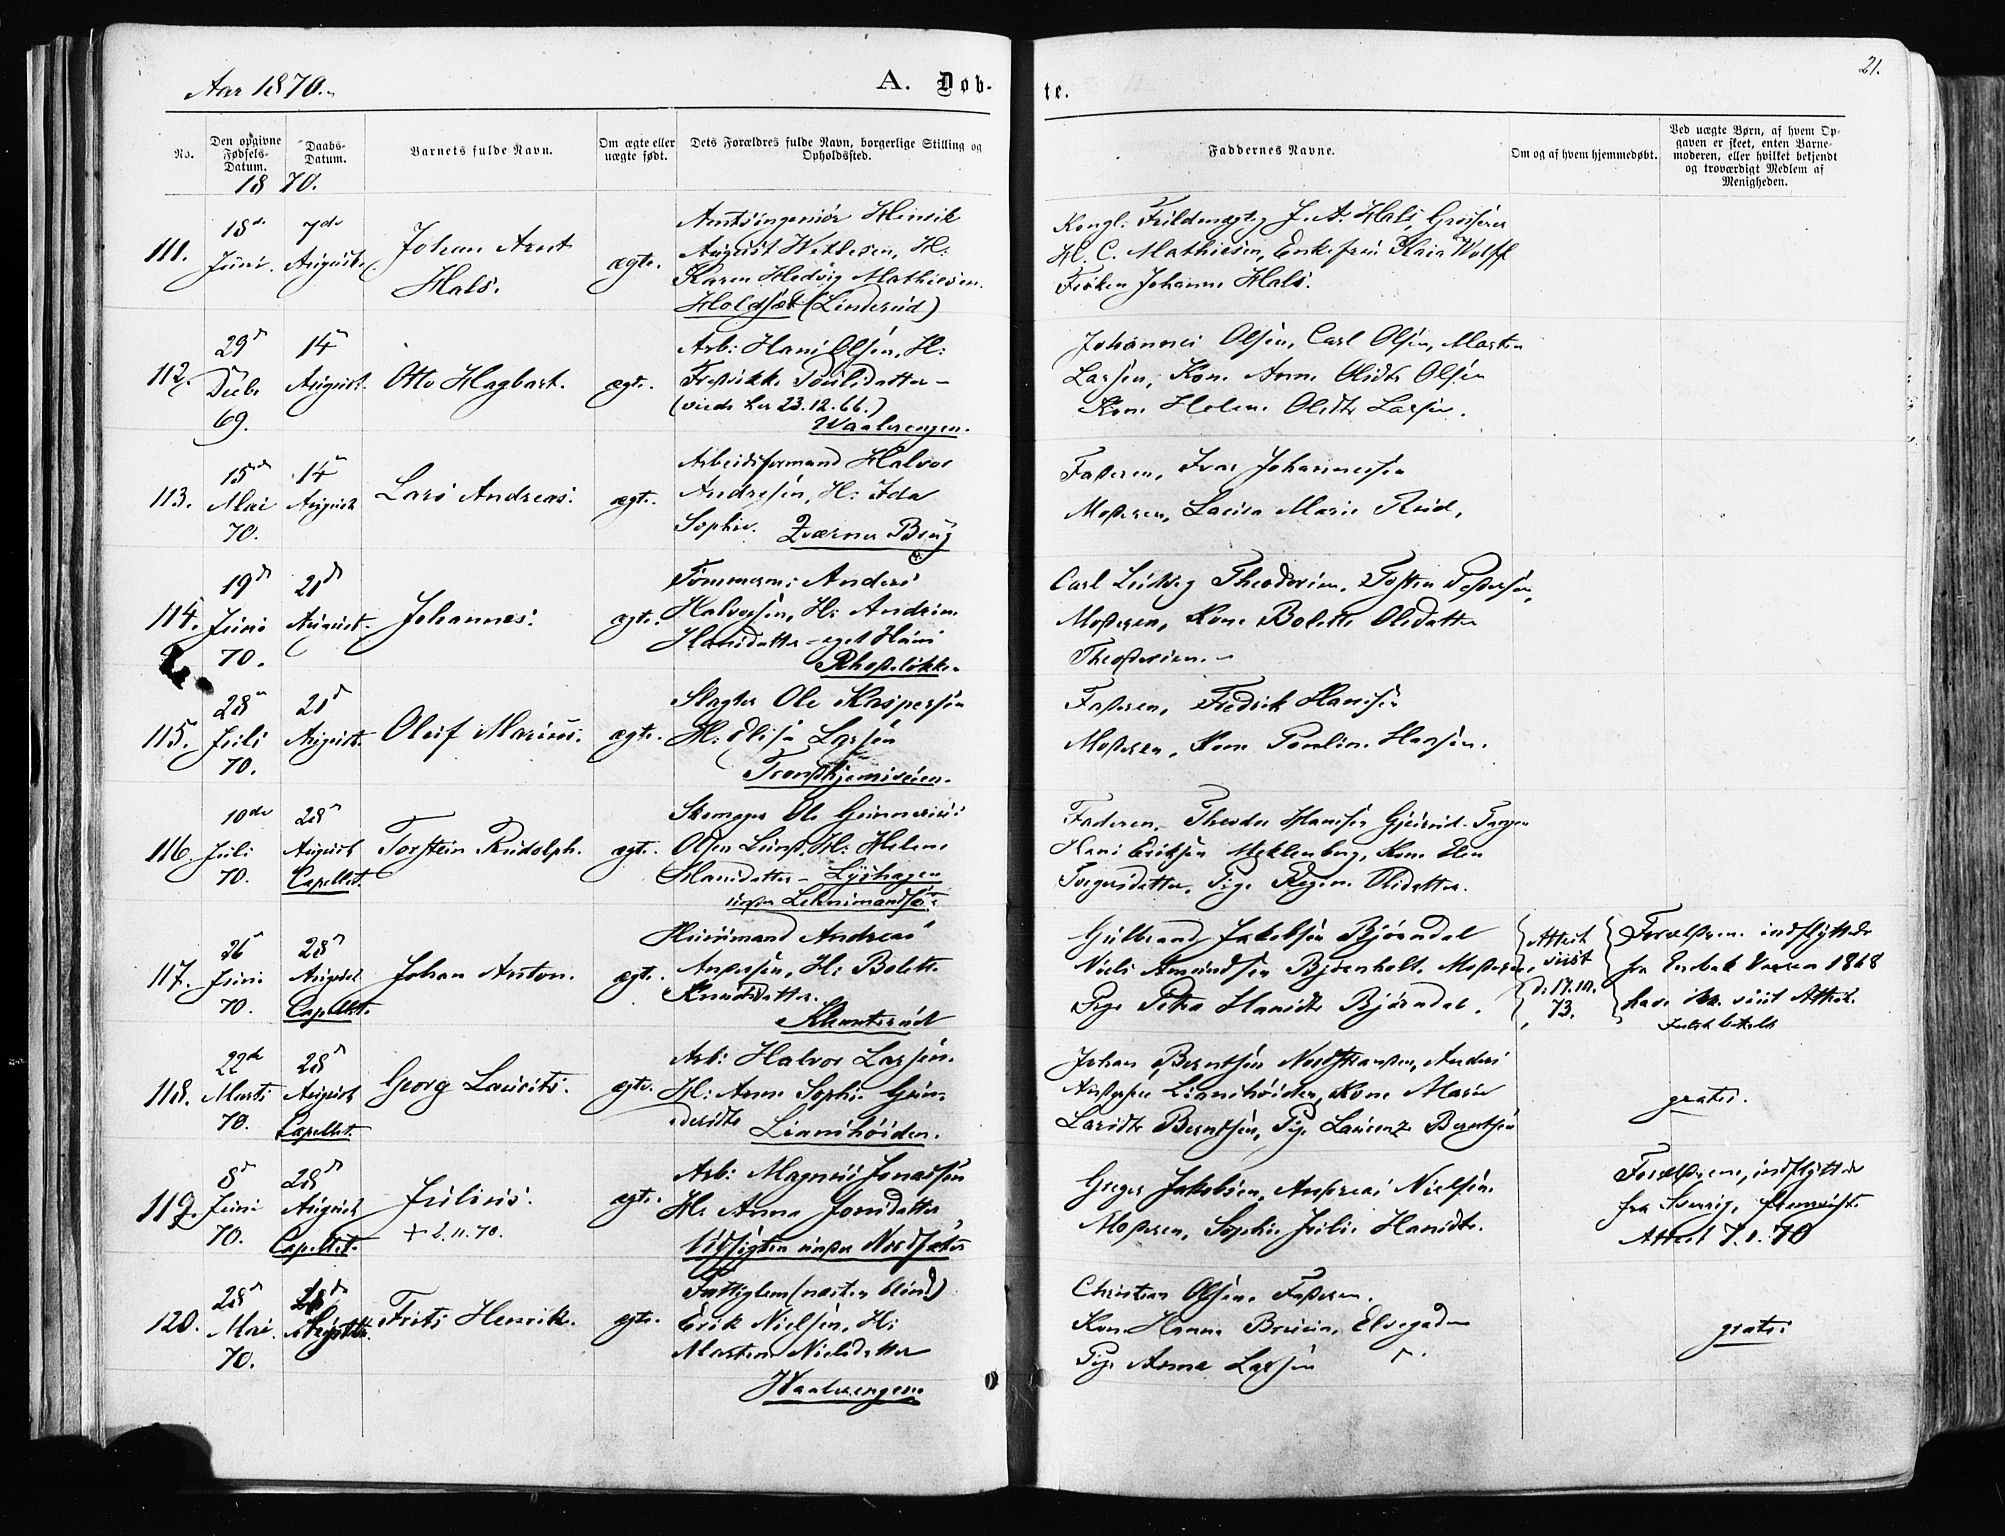 Aar 1870.
A. Døb-
te.
21.
No.
Den opgivne Fødsels-Datum.
Daabs-Datum.
Barnets fulde Navn.
Om ægte eller uægte født.
Dets Forældres fulde Navn, borgerlige Stilling og Opholdssted.
Faddernes Navne.
Om og af hvem hjemmedøbt.
Ved uægte Børn, af hvem Opgaven er skeet, enten Barnemoderen, eller hvilket bekjendt og troværdigt Medlem af Menigheden.
1870.
111.
18de Juni.
7de August.
Johan Arnt
Hals.
ægte.
Amtsingeniør Henrik
August Wetlesen, H:
Karen Hedvig Mathiesen.
(Linderud)
J. A. Hals, Grosserer
H. C. Mathiesen, Enkefru Kaia Wolff
Frøken Johanne Hals.
112.
29d Decbr 69.
14n August.
Otto Hagbart.
ægte.
Arb: Hans Olsen, H:
Fredrikke Poulsdatter –
(viede her 23.12.66.)
Waalerengen.
Johannes Olsen, Carl Olsen, Marten
Larsen, Kone Anne Olsdtr Olsen
Kone Helene Olsdtr Larsen.
113.
15de Mai 70.
14n August
Lars Andreas.
ægte.
Arbeidsformand Halvor
Andresen, H: Ida
Sophie. Kværner Brug
Faderen, Ivar Johannessen
Moderen, Lovisa Marie Ruud,
114.
19d Juni 70.
21d August.
Johannes.
ægte.
Tømmerm: Anders
Halvorsen, H: Andrine
Hansdatter – eget Huus
Rhodeløkken
Carl Ludvig Theodorsen, Torsten Pedersen,
Moderen, Kone Bolette Olsdatter
Theodorsen. –
115.
28n Juli 70.
21d August.
Oluf Marius.
ægte.
Slagter Ole Kaspersen
H: Elise Larsen
Trondhjemsveien.
Faderen, Fredrik Hansen
Moderen, Kone Pauline Hansen.
116.
10de Juli 70.
28n August Capellet.
Torstein Rudolph.
ægte.
Skomager Ole Gunnerius
Olsen Lund, H: Helene
Hansdatter – Lyshagen
under
Faderen, Theodor Hansen
Hans Eriksen Meklenborg, Kone Elen
Torgersdatter, Pige Regine Olsdatter.
117.
26n Juni 70.
28n August Capellet.
Johan Anton.
ægte.
Huusmand Andreas
Andersen, H: Bolette
Knudsdatter.
Klemetsrud
Gulbrand Jakobsen Bjørndal
Niels Amundsen Bjørnholt, Moderen,
Pige Petra Hansdtr Bjørndal.
Attest
viist
d: 17.10.
73.
Forældrene indflyttede
fra Enebak Vaaren 1868
have ikke viist Attest.
118.
22de Marts 70.
28n August Capellet.
Georg Laurits.
ægte.
Arb: Halvor Larsen.
H: Anne Sophie Gun-
dersdtr
Lianshøiden.
Johan Berntsen Nordstranden, Anders
Andersen Lianshøiden, Kone Maria
Larsdtr Berntsen, Pige Laurenze Berntsen
gratis.
119.
8d Juni 70.
28n August Capellet.
Julius.
+ 2.11.70.
ægte.
Arb: Magnus Jonassen
H: Anna Jonsdatter
Udsigten under Nordsæter
Greger Jakobsen, Andreas Nielsen.
Moderen, Sophie Julie Hansdtr.
Forældrene, indflyttede
fra Sverrig, fremviste
Attest 7.1.70
120.
28n Mai 70.
Frits Henrik.
ægte.
Fattiglem (næsten blind)
Erik Nielsen, H:
Marten Nielsdatter
Waalerengen.
Christian Olsen, Faderen.
Kone Hanna Bruun, Elvegaden
Pige Anna Larsen
gratis